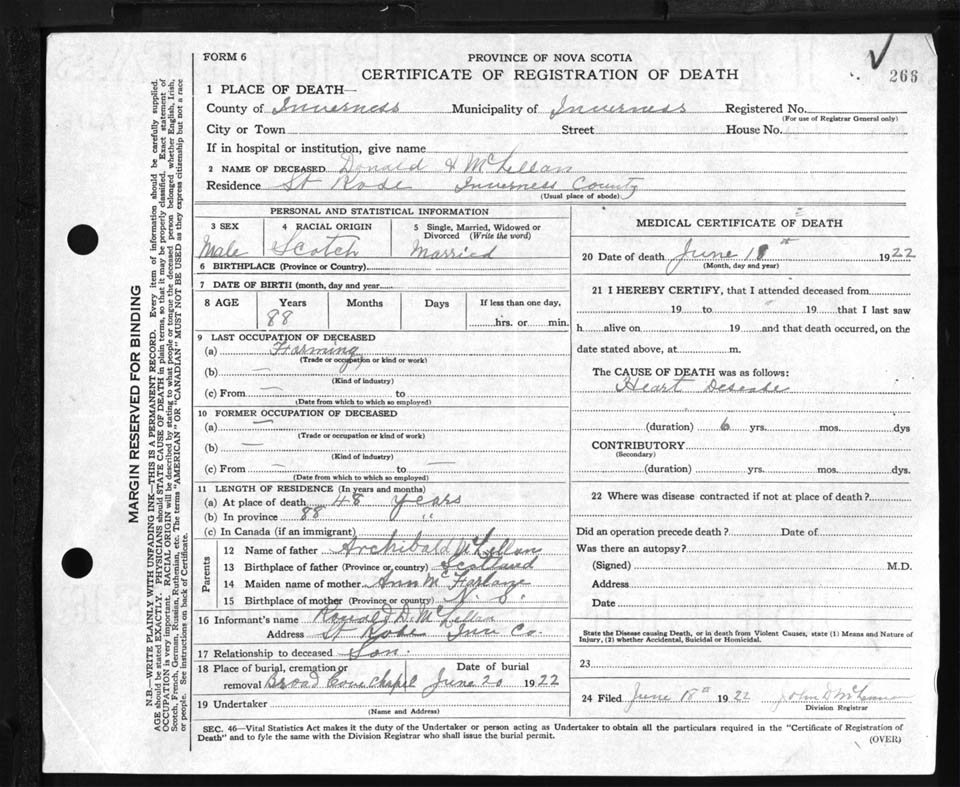 266
FORM 6
PROVINCE OF NOVA SCOTIA
CERTIFICATE OF REGISTRATION OF DEATH
1 PLACE OF DEATH—
County of Inverness Municipality of Inverness Registered No.
(For use of Registrar General only)
City or Town Street House No.
If in hospital or institution, give name
2 NAME OF DECEASED Donald H McLellan
Residence St Rose Inverness County
(Usual place of abode)
PERSONAL AND STATISTICAL INFORMATION
3 SEX 4 RACIAL ORIGIN 5 Single, Married, Widowed or Divorced (Write the word)
Male Scotch Married
6 BIRTHPLACE (Province or Country)
7 DATE OF BIRTH (month, day and year)
8 AGE Years Months Days If less than one day,
88 hrs. or min.
9 LAST OCCUPATION OF DECEASED
(a) Farming
(Trade or occupation or kind or work)
(b) —
(Kind of industry)
(c) From — to
(Date from which to which so employed)
10 FORMER OCCUPATION OF DECEASED
(a) —
(Trade or occupation or kind of work)
(b) —
(Kind of industry)
(c) From — to —
(Date from which to which so employed)
11 LENGTH OF RESIDENCE (In years and months)
(a) At place of death 48 years
(b) In province 88 "
(c) In Canada (if an immigrant)
Parents
12 Name of father Archibald McLellan
13 Birthplace of father (Province or country) Scotland
14 Maiden name of mother Ann McFarlane
15 Birthplace of mother (Province or country) N. S.
16 Informant's name Ronald D. McLellan
Address St Rose Inv Co.
17 Relationship to deceased Son.
18 Place of burial, cremation or removal Date of burial
Broad Cove Chapel June 20 1922
19 Undertaker
(Name and Address)
MEDICAL CERTIFICATE OF DEATH
20 Date of death June 18th 1922
(Month, day and year)
21 I HEREBY CERTIFY, that I attended deceased from
19 to 19 that I last saw
h alive on 19 and that death occurred, on the
date stated above, at m.
The CAUSE OF DEATH was as follows:
Heart Desease
(duration) 6 yrs. mos. dys
CONTRIBUTORY
(Secondary)
(duration) yrs. mos. dys.
22 Where was disease contracted if not at place of death?
Did an operation precede death? Date of
Was there an autopsy?
(Signed) M.D.
Address
Date
State the Disease causing Death, or in death from Violent Causes, state (1) Means and Nature of
Injury, (2) whether Accidental, Suicidal or Homicidal.
23
24 Filed June 18th 1922 John D McLennan
Division Registrar
SEC. 46—Vital Statistics Act makes it the duty of the Undertaker or person acting as Undertaker to obtain all the particulars required in the "Certificate of Registration of
Death" and to fyle the same with the Division Registrar who shall issue the burial permit.
(OVER)
MARGIN RESERVED FOR BINDING
N.B.—WRITE PLAINLY WITH UNFADING INK—THIS IS A PERMANENT RECORD. Every item of information should be carefully supplied.
AGE should be stated EXACTLY. PHYSICIANS should STATE CAUSE OF DEATH in plain terms, so that it may be properly classified. Exact statement of
OCCUPATION is very important. RACIAL ORIGIN will be described by stating to what people or tongue the deceased person belonged whether English, Irish,
Scotch, French, German, Russian, Ruthenian, etc. The terms "AMERICAN" OR "CANADIAN" MUST NOT BE USED as they express citizenship but not a race
or people. See instructions on back of Certificate.